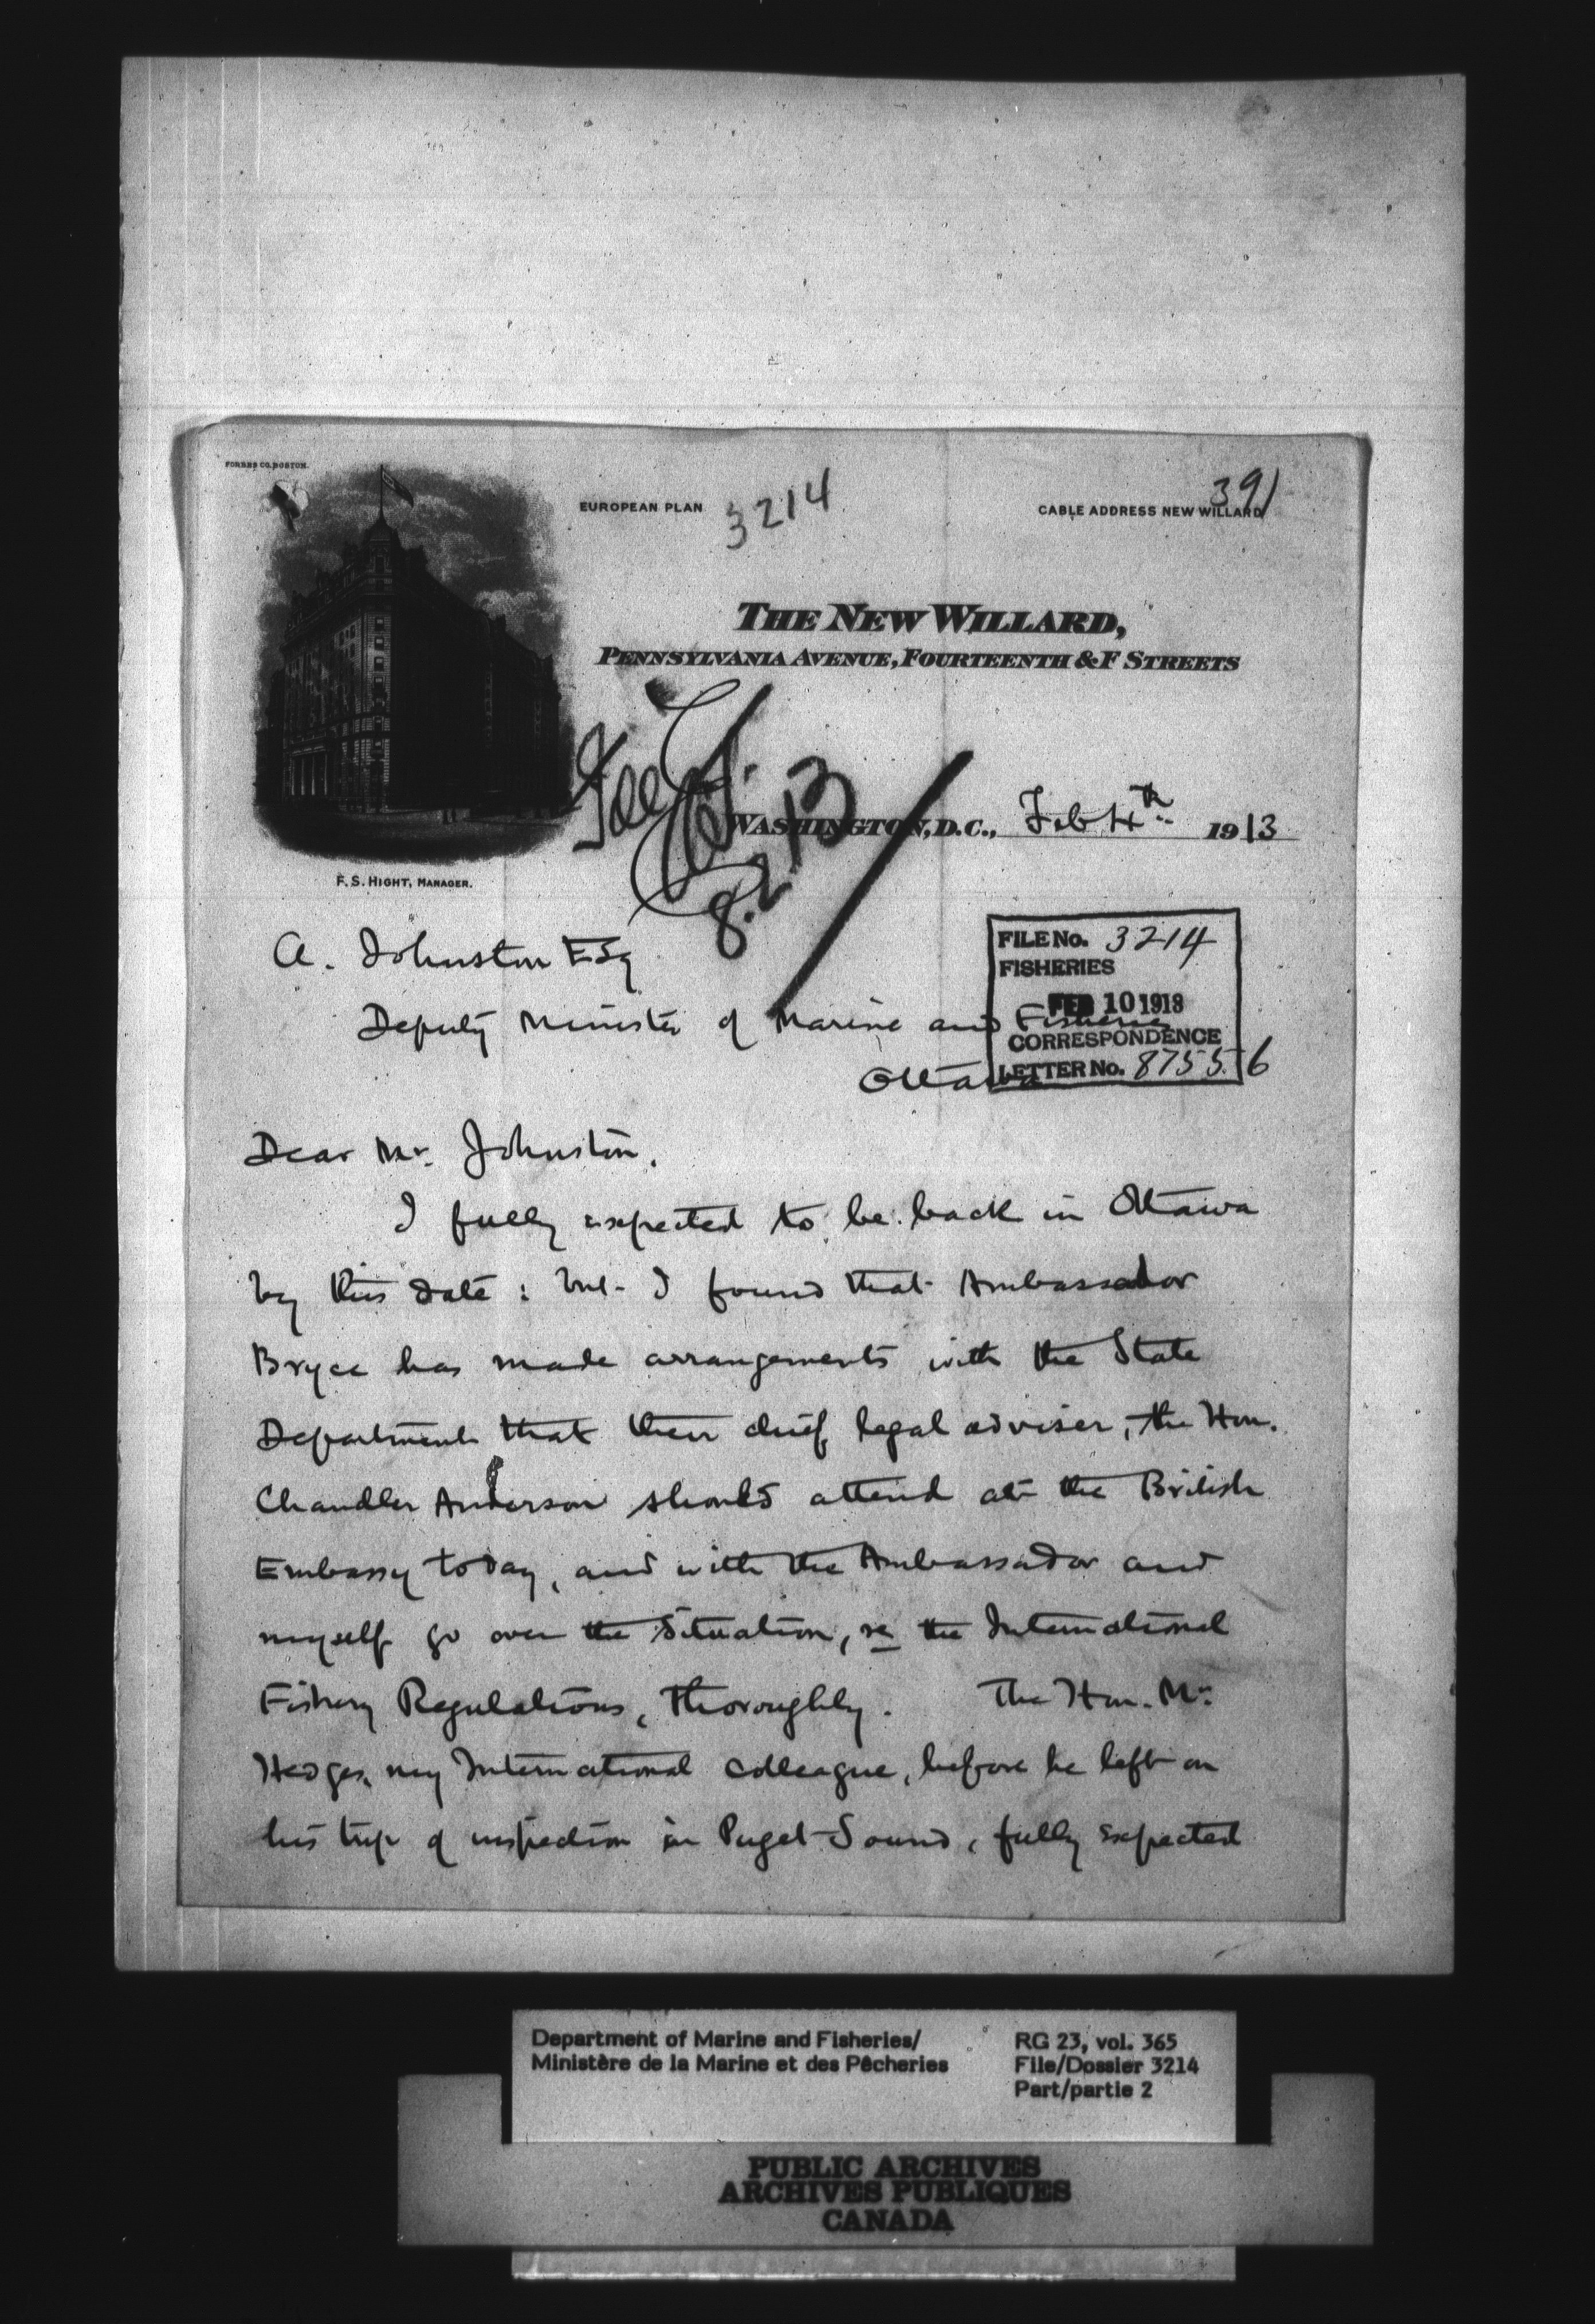 FORBES CO. BOSTON.
EUROPEAN PLAN
3214
391
CABLE ADDRESS NEW WILLARD
THE NEW WILLARD,
PENNSYLVANIA AVENUE, FOURTEENTH & F STREETS
File
8.2.13
WASHINGTON, D.C., Feb 4th 1913
F. S. HIGHT, MANAGER.
A. Johnston Esq
Deputy Minister of Marine and Fisheries
Ottawa
FILE No. 3214
FISHERIES
FEB 10 1913
CORRESPONDENCE
LETTER No. 87556
Dear Mr. Johnston,
I fully expected to be back in Ottawa
by this date: but I found that Ambassador
Bryce has made arrangements with the State
Department that their chief legal adviser, the Hon.
Chandler Anderson should attend at the British
Embassy today, and with the Ambassador and
myself go over the Situation, re the International
Fishery Regulations, thoroughly. The Hon. Mr.
Hedges, my International colleague, before he left on
his trip of inspection in Puget Sound, fully expected
Department of Marine and Fisheries/
Ministère de la Marine et des Pêcheries
RG 23, vol. 365
File/Dossier 3214
Part/partie 2
PUBLIC ARCHIVES
ARCHIVES PUBLIQUES
CANADA